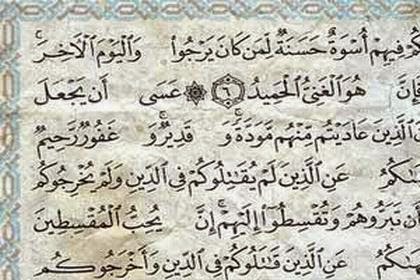 كُمْ فِيهِمْ أُسْوَةٌ حَسَنَةٌ لِّمَن كَانَ يَرْجُوا وَالْيَوْمَ الْآخِرَ
فَإِنَّ هُوَ الْغَنِيُّ الْحَمِيدُ ٦ عَسَى أَن يَجْعَلَ
الَّذِينَ عَادَيْتُم مِّنْهُم مَّوَدَّةً وَ قَدِيرٌ وَ غَفُورٌ رَّحِيمٌ
ـٰكُمُ عَنِ الَّذِينَ لَمْ يُقَـٰتِلُوكُمْ فِي الدِّينِ وَلَمْ يُخْرِجُوكُم
أَن تَبَرُّوهُمْ وَتُقْسِطُوا إِلَيْهِمْ إِنَّ يُحِبُّ الْمُقْسِطِينَ
ـٰكُمُ عَنِ الَّذِينَ قَـٰتَلُوكُمْ فِي الدِّينِ وَأَخْرَجُوكُم